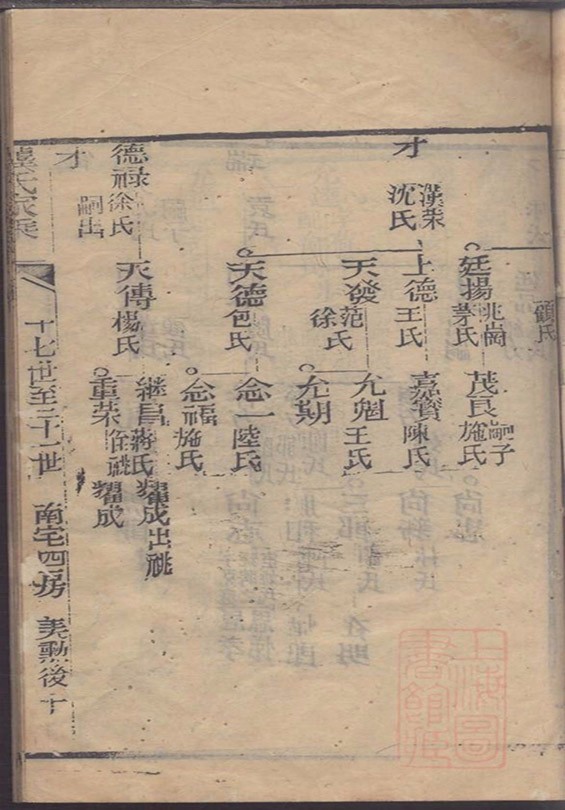 顧氏
廷揚 兆嵩 茅氏
茂良 嗣子 施氏
才
漢榮 沈氏
上德 王氏
嘉賓 陳氏
天發 范氏 徐氏
允魁 王氏
允期
天德 包氏
念一 陸氏
念福 施氏
德祿 徐氏
天傳 楊氏
繼昌 蔣氏 耀成出祧
重榮 耀成
才
嗣出
氏家乘
十七世至二十一世 南宅四房 美勲後 十
上海圖書館藏